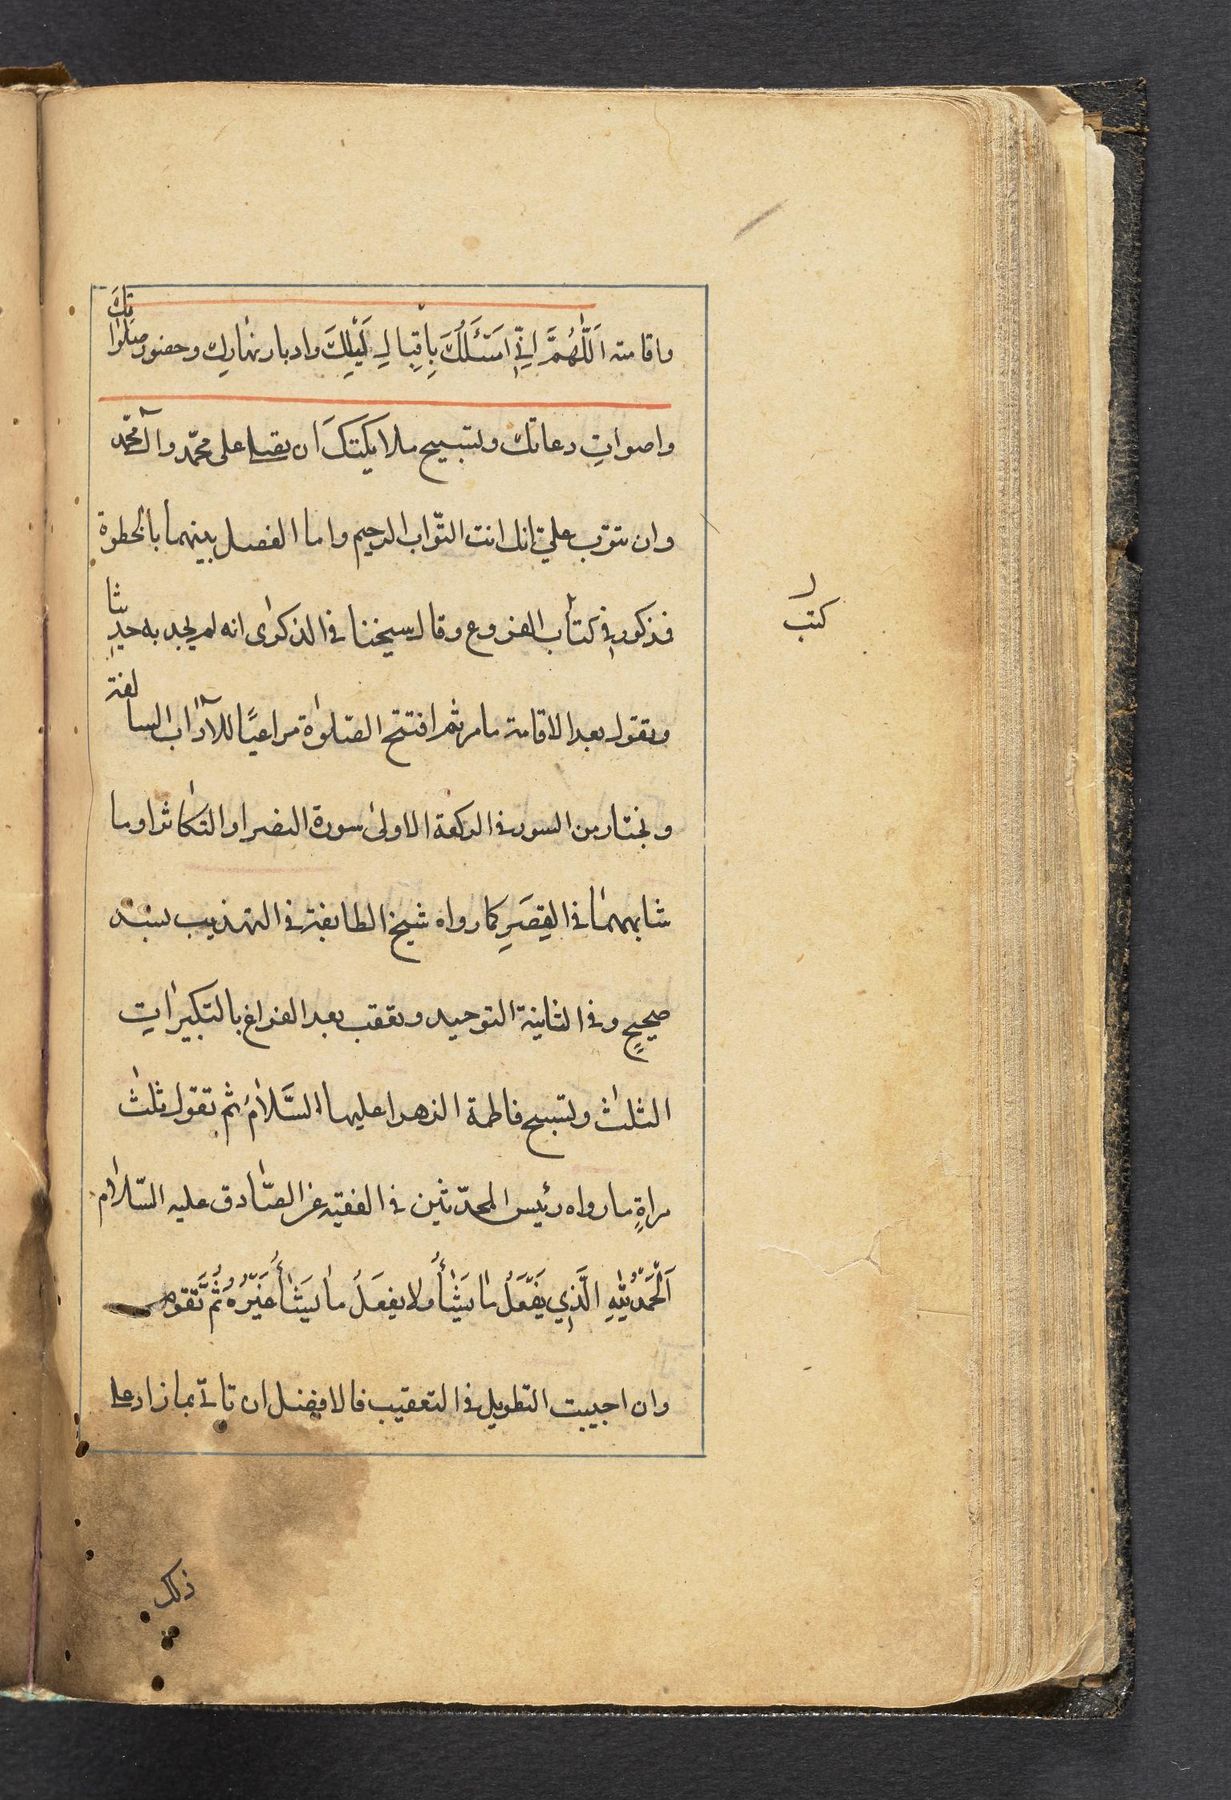 واقامته اَللّٰهُمَّ اِنّي اَسْئَلُكَ بِاِقبالِ لَيْلِكَ وادبار نهارِك وحضور صلواتِكَ
واصواتِ دعاتك وتسبيح ملايكتكَ ان تصلى على محمّد وآل محمّد
وان تتوب علىّ انك انت التّواب الرحيم واما الفصل بينهما بالخطوة
فذكور في كتاب الفروع وقال شيخنا في الذكرى انه لم يجد به حديثا
وتقول بعد الاقامة ما مر ثم افتتح الصّلوٰة مراعيًا للآداب السالفة
وتختار من السور في الركعة الاولىٰ سورة النصر او التكاثر او ما
شابههما في القِصَرِ كما رواه شيخ الطايفة في التهذيب بسند
صحيحٍ وفي الثانية التوحيد وتعقب بعد الفراغ بالتكبيراتِ
الثلث وتسبيح فاطمة الزهرا عليها السَّلامُ ثم تقول ثلث
مراةٍ ما رواه رئيس المحدّثين في الفقيه عن الصّادق عليه السّلام
اَلْحَمْدُ لِلّٰهِ الَّذِي يَفْعَلُ ما يَشٰأُ ولا يفعَلُ ما يَشٰأُ غَيْرُهُ ثُمَّ تقوم
وان احببت التطويل في التعقيب فالافضل ان تاتي بما زاد على
ر
كتب
ذلك